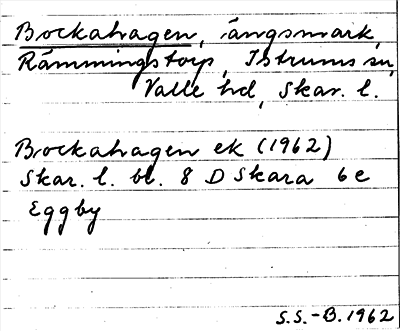 Bockahagen, ängsmark,
Rämmingstorp, Istrums sn,
Valle hd, Skar. l.
Brockahagen ek (1962)
Skar. l. bl. 8 D Skara 6e
Eggby
S.S.-B. 1962